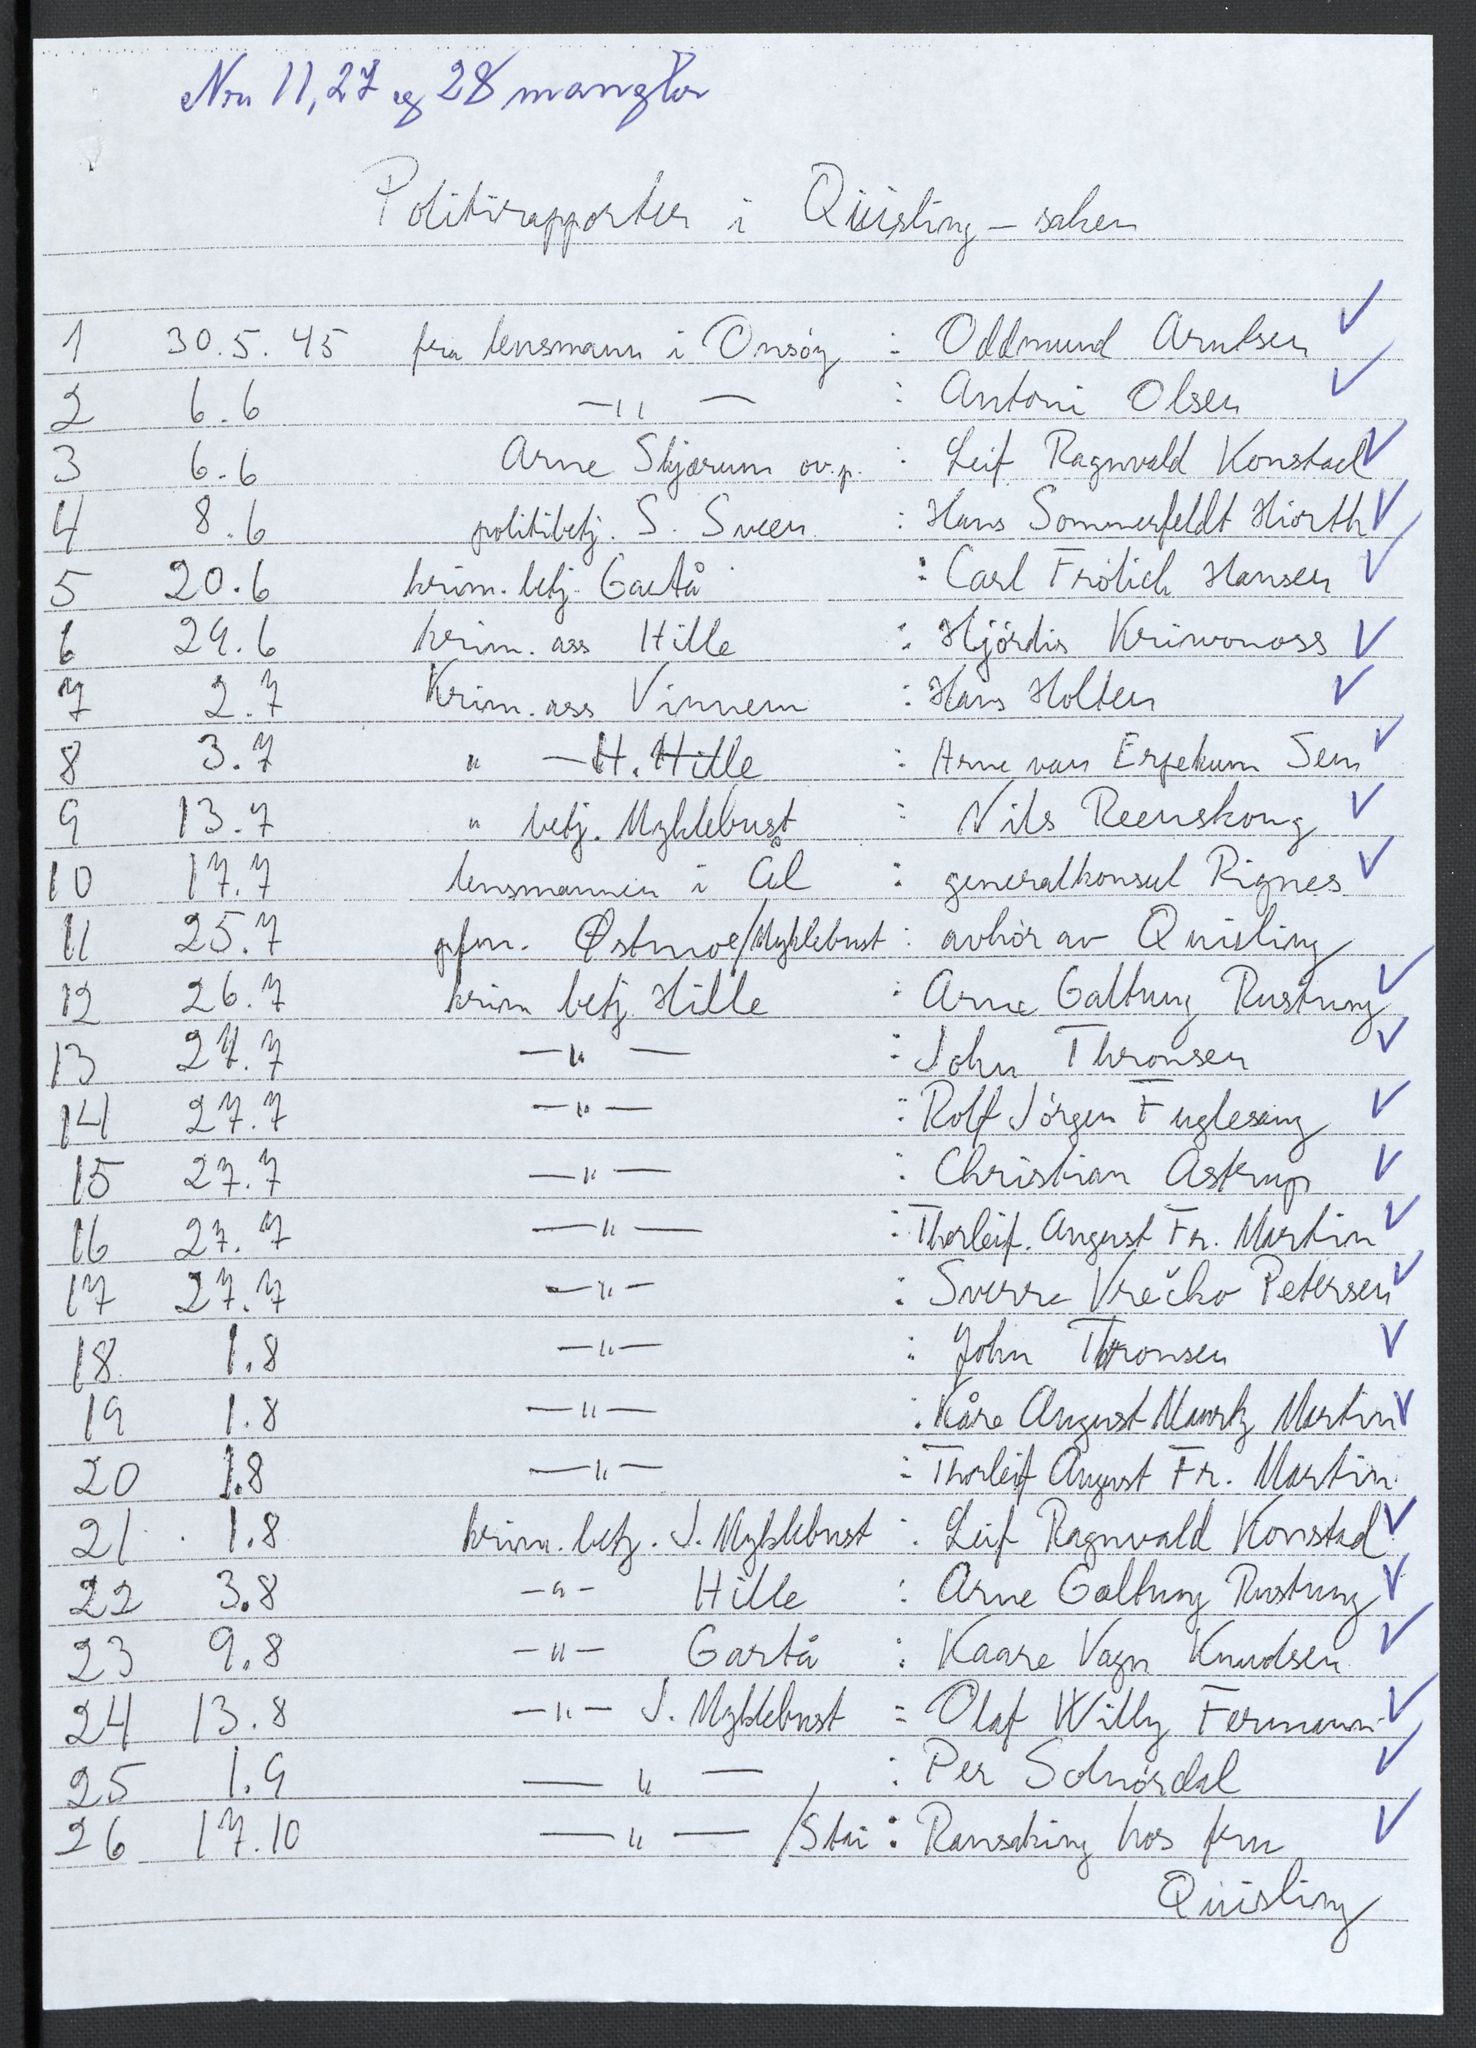 Nr. 11, 27 og 28 mangler
Politirapporter i Quisling-saken
1 30.5.45 fra lensmann i Onsøy : Oddmund Arntsen ✓
2 6.6 —"— : Antoni Olsen ✓
3 6.6 Arne Skjærum ov.p. : Leif Ragnvald Konstad ✓
4 8.6 politibetj. S. Sveen : Hans Sommerfeldt Hiorth ✓
5 20.6 krim. betj. Gartå : Carl Frölich Hansen ✓
6 29.6 krim. ass Hille : Hjördis Kriwonoss ✓
7 2.7 Krim. ass Vinnem : Hans Holten ✓
8 3.7 " — H. Hille : Arne van Erpekum Sem ✓
9 13.7 " betj. Myklebust : Nils Reenskoug ✓
10 17.7 lensmannen i Ål : generalkonsul Rignes ✓
11 25.7 pfm. Østmoe/Myklebust : avhör av Quisling
12 26.7 krim betj. Hille : Arne Galtung Rustung ✓
13 27.7 —"— : John Thronsen ✓
14 27.7 —"— : Rolf Jörgen Fuglesang ✓
15 27.7 —"— : Christian Astrup ✓
16 27.7 —"— : Thorleif. August Fr. Martin ✓
17 27.7 —"— : Sverre Vrečko Petersen ✓
18 1.8 —"— : John Thronsen ✓
19 1.8 —"— : Kåre August Maurtz Martin ✓
20 1.8 —"— : Thorleif August Fr. Martin
21 1.8 krim. betj. J. Myklebust : Leif Ragnvald Konstad ✓
22 3.8 —"— Hille : Arne Galtung Rustung ✓
23 9.8 —"— Gartå : Kaare Vagn Knudsen ✓
24 13.8 —"— J. Myklebust : Olaf Willy Fermann ✓
25 1.9 —"— : Per Solnördal ✓
26 17.10 —"— /Stai : Ransaking hos fru ✓
Quisling